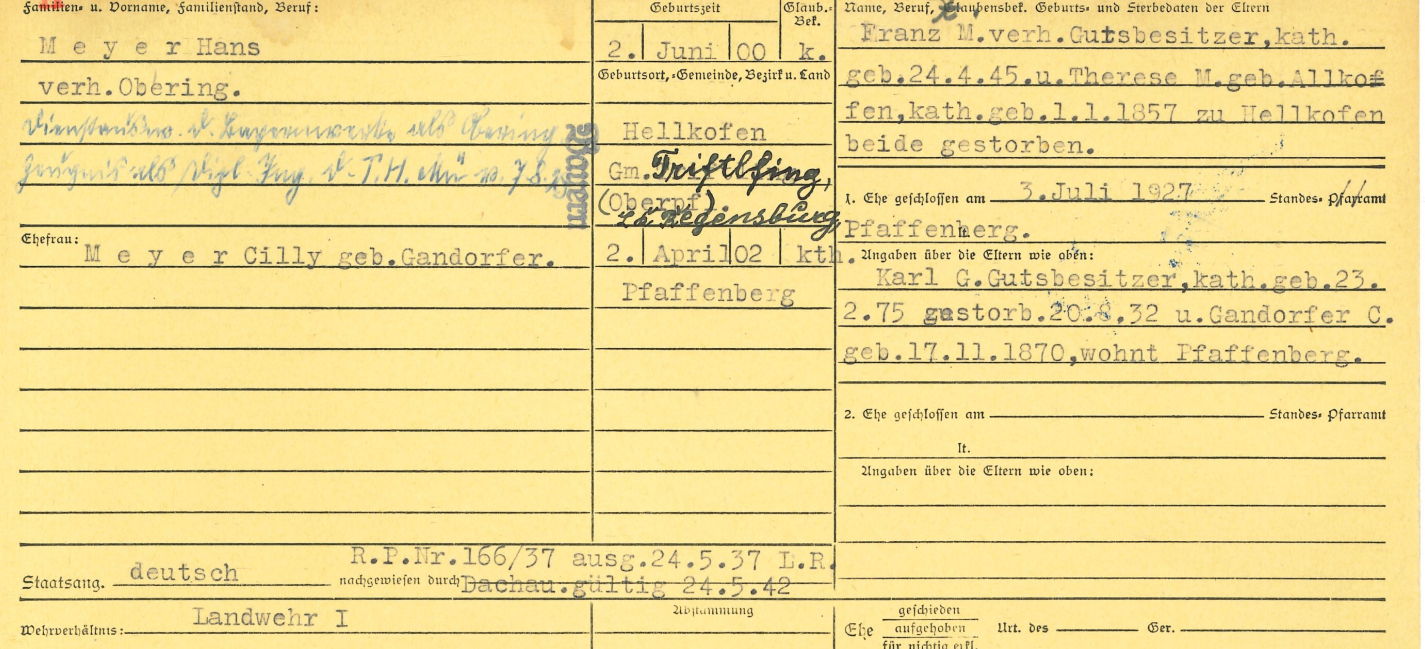 Familien- u. Vorname, Familienstand, Beruf:
M e y e r Hans
verh.Obering.
Dienstausw. d. Bayernwerke als Obering
Zeugnis als Dipl. Ing. d. T.H. Mü v.
Bayern
Ehefrau:
M e y e r Cilly geb.Gandorfer.
Geburtszeit
Glaub.-Bek.
2. Juni 00 k.
Geburtsort,-Gemeinde, Bezirk u. Land
Hellkofen
Gm. Triftlfing,
(Oberpf).
Regensburg,
2. April 02 kth.
Pfaffenberg
Name, Beruf, Glaubensbek. Geburts- und Sterbedaten der Eltern
Franz M.verh.Gutsbesitzer,kath.
geb.24.4.45.u.Therese M.geb.Allkof
fen,kath.geb.1.1.1857 zu Hellkofen
beide gestorben.
1. Ehe geschlossen am 3.Juli 1927 Standes- Pfarramt
Pfaffenberg.
Angaben über die Eltern wie oben:
Karl G.Gutsbesitzer,kath.geb.23.
2.75 gestorb.20.8.32 u.Gandorfer C.
geb.17.11.1870,wohnt Pfaffenberg.
2. Ehe geschlossen am Standes- Pfarramt
lt.
Angaben über die Eltern wie oben:
R.P.Nr.166/37 ausg.24.5.37 L.R.
Staatsang. deutsch nachgewiesen durch Dachau.gültig 24.5.42
Wehrverhältnis: Landwehr I
Abstammung
Ehe geschieden
aufgehoben
für nichtig erkl.
Urt. des Ger.